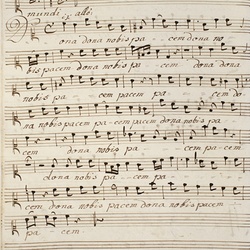 mundi
ona dona nobis pa - cem dona no
bis pacem dona nobis pa - cem dona dona
nobis pa - cem pacem pa - cem do
na nobis pacem pa - cem pacem dona nobis pa -
cem dona nobis pa - cem pa - cem
dona nobis pa - cem pa -
cem dona nobis pacem dona nobis pacem
pa - cem